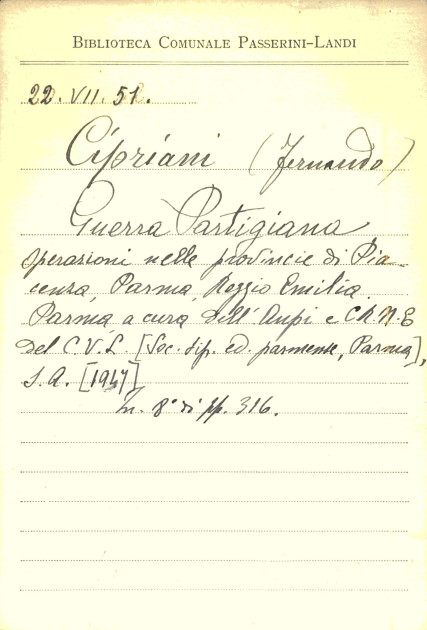 BIBLIOTECA COMUNALE PASSERINI-LANDI
22. VII. 51.
Cipriani (Fernando)
Guerra Partigiana
operazioni nelle provincie di Pia-
cenza, Parma, Reggio Emilia.
Parma, a cura dell'Anpi e C.R.N.E
del C.V.L. [Soc. tip. ed. parmense, Parma],
S.A. [1947]
In. 8° di pp. 316.